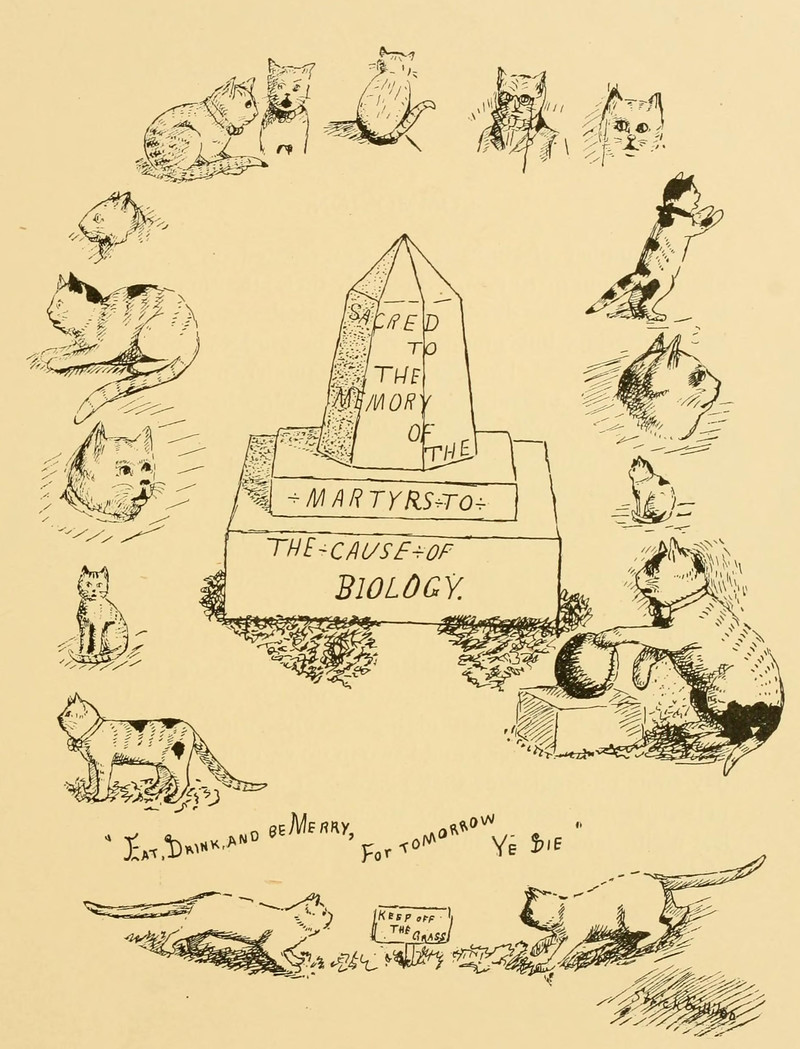 SACRED
TO
THE
MEMORY
OF
THE
÷MARTYRS÷TO÷
THE÷CAUSE÷OF
BIOLOGY.
" EAT, DRINK, AND BE MERRY, FOR TOMORROW YE DIE "
KEEP OFF
THE
GRASS